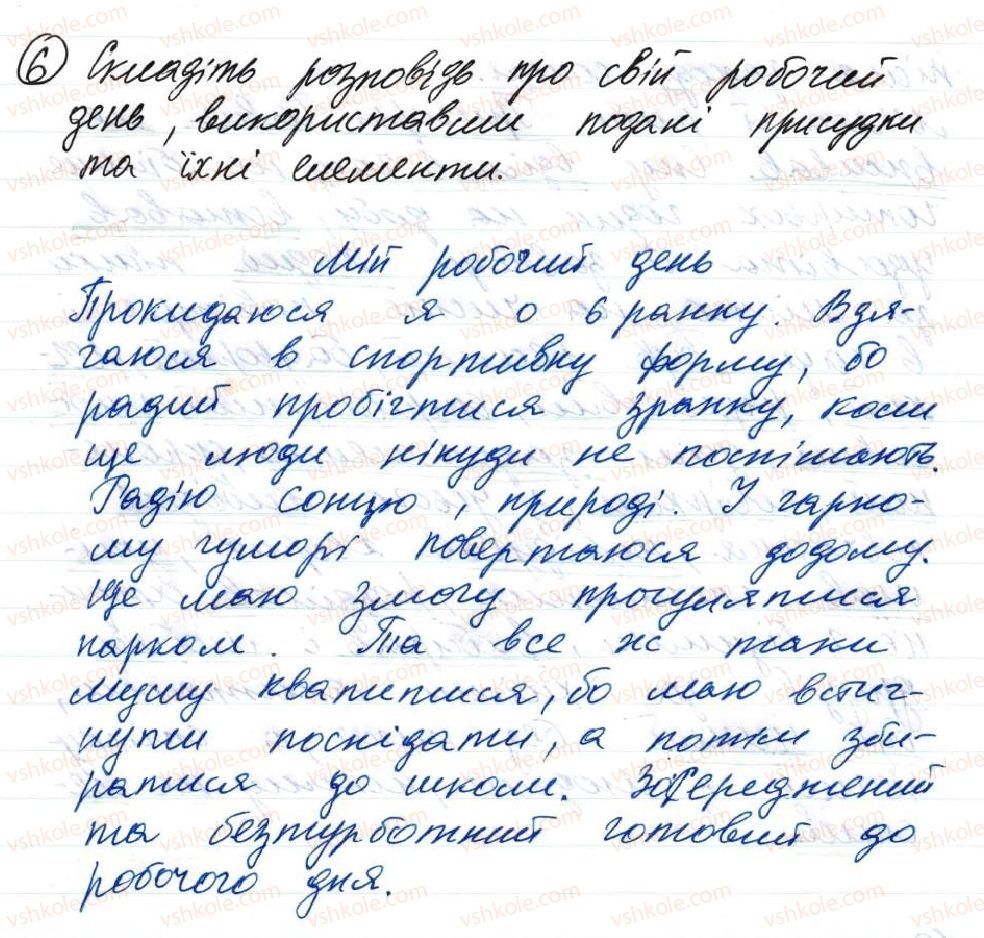 6 Складіть розповідь про свій робочий
день, використавши подані присудки
та їхні елементи.
Мій робочий день
Прокидаюся я о 6 ранку. Вдя-
гаюся в спортивну форму, бо
радий пробігтися зранку, коли
ще люди нікуди не поспішають.
Радію сонцю, природі. У гарно-
му гуморі повертаюся додому.
Ще маю змогу прогулятися
парком. Та все ж таки
мушу квапитися, бо маю встиг-
нути поснідати, а потім зби-
ратися до школи. Зосереджений
та безтурботний готовий до
робочого дня.
vshkole.com